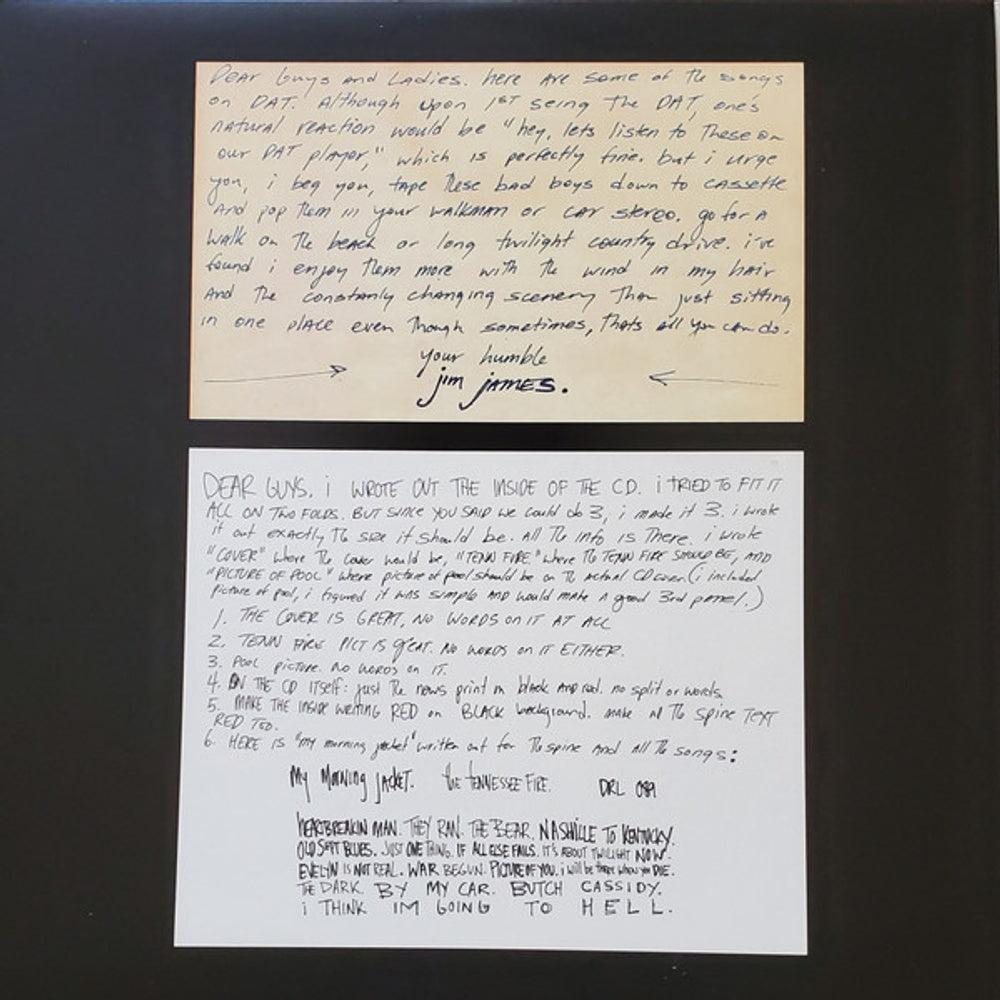 Dear Guys and Ladies. here are some of the songs
on DAT. Although upon 1ST seing the DAT, one's
natural reaction would be "hey, lets listen to these on
our DAT player," which is perfectly fine. but i urge
you, i beg you, tape these bad boys down to cassette
And pop them in your walkman or car stereo. go for a
walk on the beach or long twilight country drive. i've
found i enjoy them more with the wind in my hair
And the constanly changing scenery than just sitting
in one place even though sometimes, thats all you can do.
your humble
jim james.
DEAR GUYS. i WROTE OUT THE INSIDE OF THE CD. i TRIED TO FIT IT
ALL ON TWO FOLDS. BUT SINCE YOU SAID we could do 3, i made it 3. i wrote
it out exactly the size it should be. All the info is There. i wrote
"COVER" where the cover would be, "TENN FIRE" where the TENN FIRE SHOULD BE, AND
"PICTURE OF POOL" where picture of pool should be on the actual CD cover (i included
picture of pool, i figured it was simple AND would make a good 3rd panel.)
1. THE COVER IS GREAT, NO WORDS ON IT AT ALL
2. TENN FIRE PICT IS great. NO WORDS on IT EITHER.
3. POOL picture. NO WORDS on IT.
4. ON THE CD ITSELF: just the news print in black AND red. no split or words.
5. MAKE THE INSIDE WRITING RED on BLACK background. make all the spine TEXT
RED TOO.
6. HERE IS "my morning jacket" written out for the spine And all the songs:
My Morning Jacket. the TENNESSEE FIRE. DRL 089
HEARTBREAKIN MAN. THEY RAN. THE BEAR. NASHVILLE TO KENTUCKY.
OLD SEPT BLUES. JUST ONE THING. IF ALL ELSE FAILS. IT'S ABOUT TWILIGHT NOW.
EVELYN IS NOT REAL. WAR BEGUN. PICTURE OF YOU. i will be there when you DIE.
THE DARK. BY MY CAR. BUTCH CASSIDY.
i THINK IM GOING TO HELL.